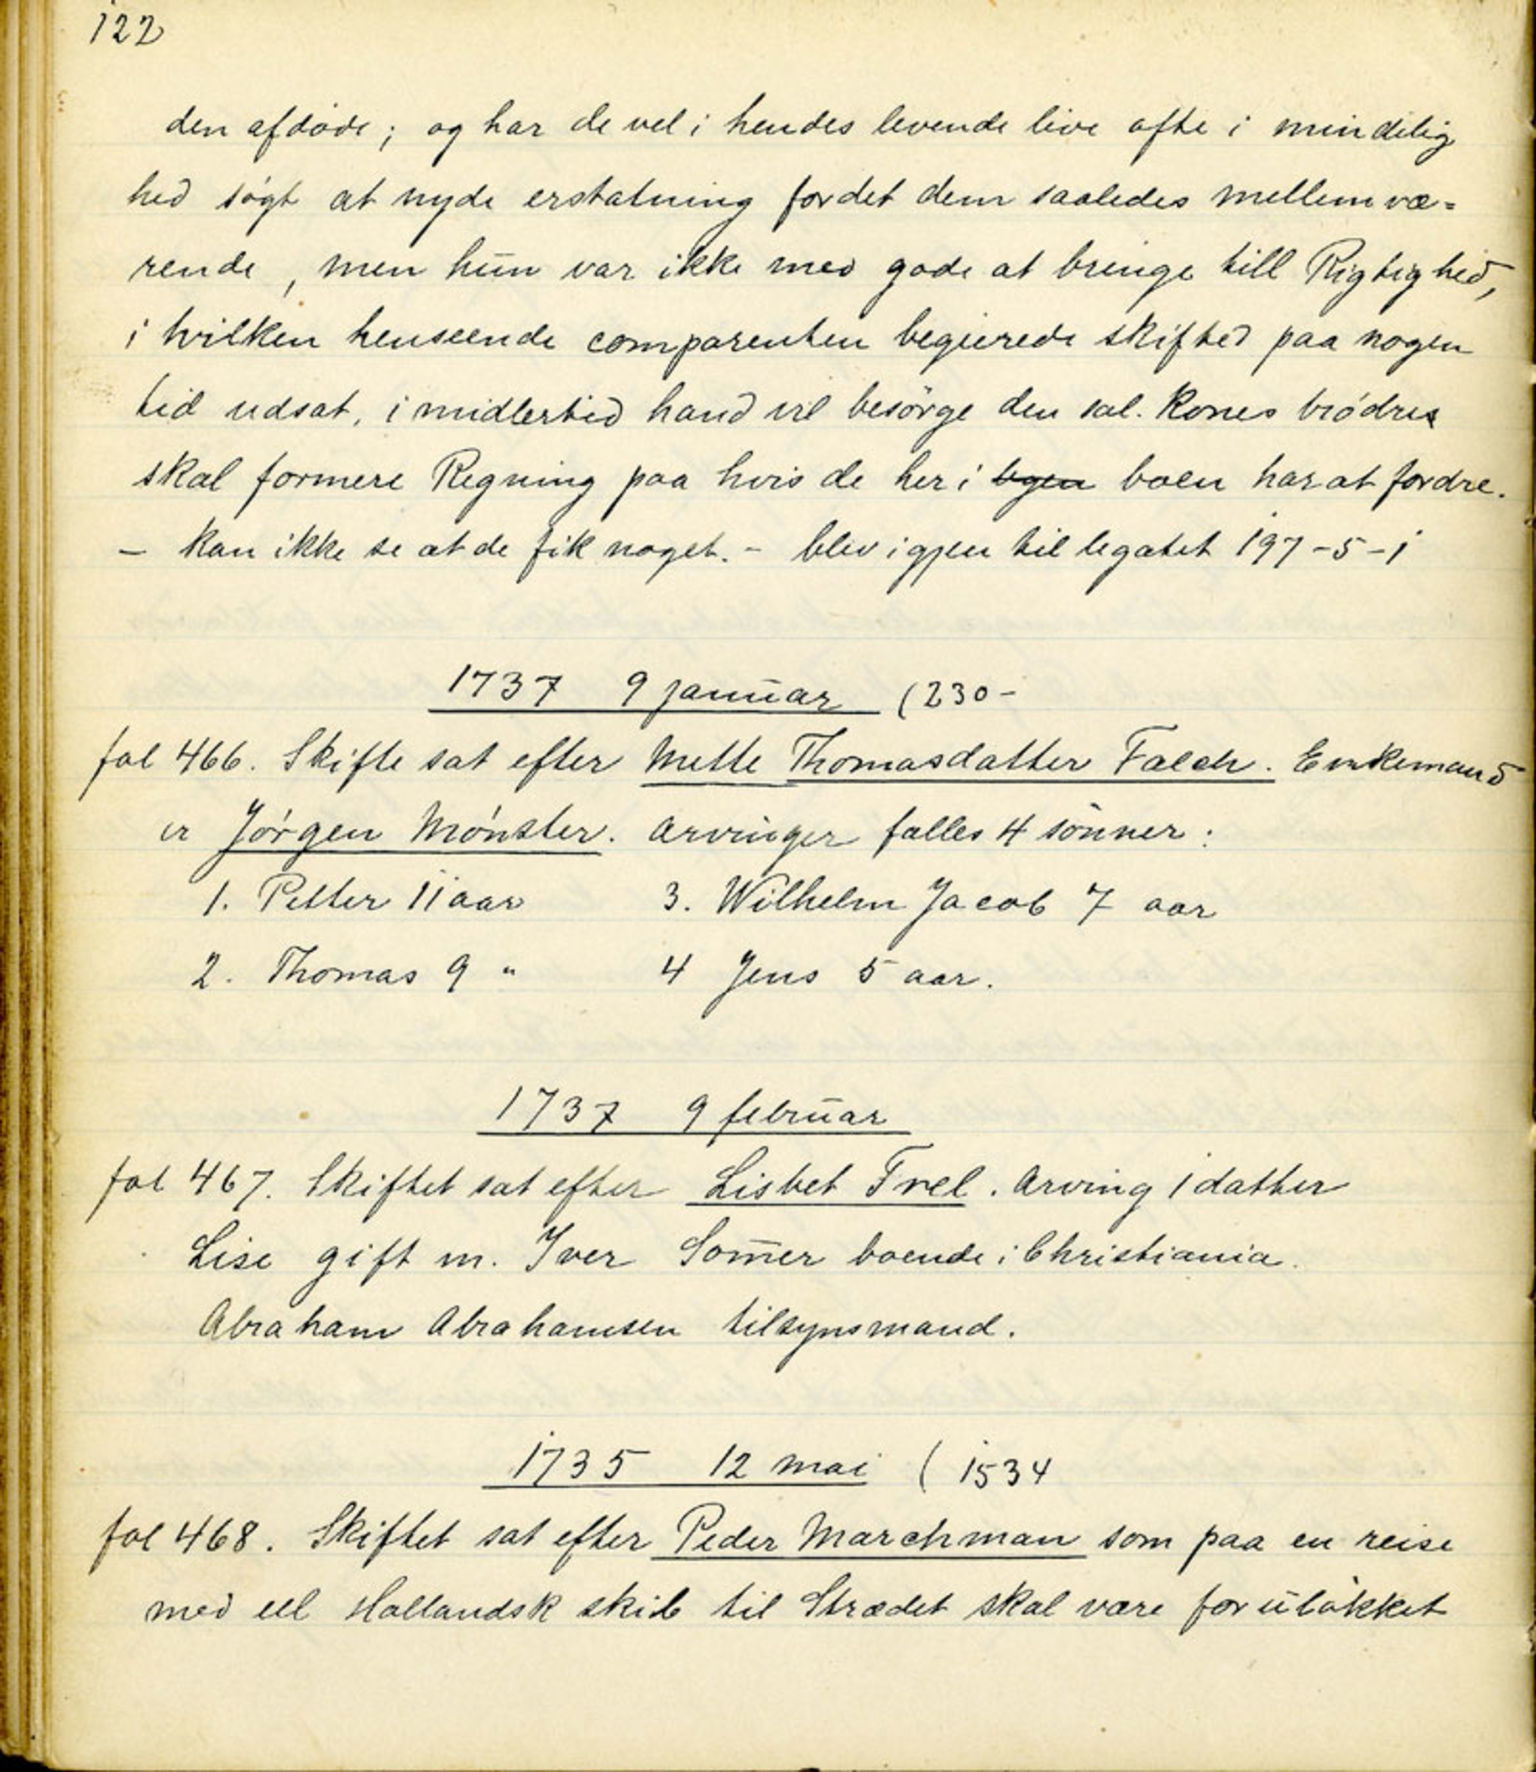 122
den afdøde; og har de vel i hendes levende live ofte i mindelig
hed søgt at nyde erstatning for det dem saaledes mellem væ=
rende, men hun var ikke med gode at bringe till Rigtighed,
i hvilken henseende comparenten begierede skifted paa nogen
tid udsat, imidlertid hand vil besørge den sal. Kones brødre
skal formere Regning paa hvis de her i boen har at fordre.
– kan ikke se at de fik noget. – blev igjen til legatet 197-5-1
1737 9 januar (230-
fol 466. Skifte sat efter Mette Thomasdatter Falch. Enkemand
er Jørgen Mønster. Arvinger fælles 4 sønner:
1. Petter 11 aar 3. Wilhelm Jacob 7 aar
2. Thomas 9 " 4 Jens 5 aar.
1737 9 februar
fol 467. Skiftet sat efter Lisbet Frel. Arving 1 datter
Lise gift m. Iver Som̄er boende i Christiania.
Abraham Abrahamsen tilsynsmand.
1735 12 mai (1534
fol 468. Skiftet sat efter Peder Marchman som paa en reise
med ett Hollandsk skib til Strædet skal være forulökket